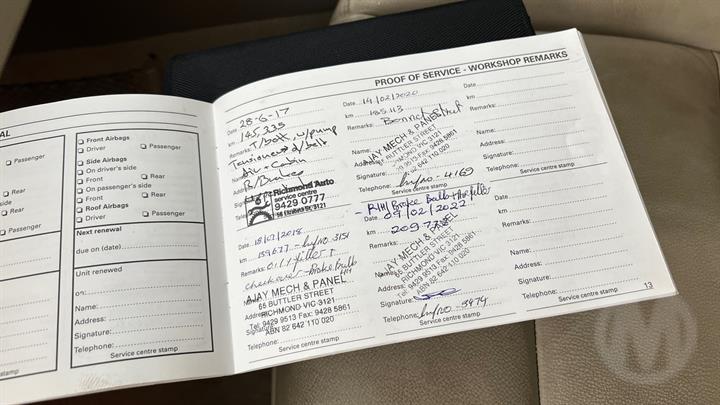 AL
Passenger
Rear
Passenger
Rear
Front Airbags
Driver
Passenger
Side Airbags
On driver's side
Front
Rear
On passenger's side
Front
Rear
Roof Airbags
Driver
Passenger
Next renewal
due on (date)
Unit renewed
on:
Name:
Address:
Signature:
Telephone:
Service centre stamp
PROOF OF SERVICE - WORKSHOP REMARKS
Date 28-6-17
km 145,235
Remarks: T/belt, w/pump
Tensioner d/belt
Air-Cabin
Richmond Auto
service centre
9429 0777
Date 18/07/2018
km 159677 - Inv no. 3151
Remarks: Oil filter +
checkover - brake bulb
Name:
AJAY MECH & PANEL
Address: 65 BUTTLER STREET
RICHMOND VIC 3121
Signature: Tel: 9429 9513 Fax: 9428 5861
ABN 82 642 110 020
Telephone:
Service centre stamp
Date 14/02/2020
km 185113
Remarks: Bonnet Strut
Name:
AJAY MECH & PANEL
Address: BUTTLER STREET
RICHMOND VIC 3121
Signature: 9513 Fax: 9428 5861
82 642 110 020
Telephone: Inv no - 4169
Service centre stamp
- R/H Brake Bulb
Date 09/02/2022
km 2097
Remarks:
AJAY MECH & PANEL
Name: 65 BUTTLER STREET
Address: RICHMOND VIC 3121
Tel: 9429 9513 Fax: 9428 5861
Signature: ABN 82 642 110 020
Telephone: Inv no - 3474
Service centre stamp
13